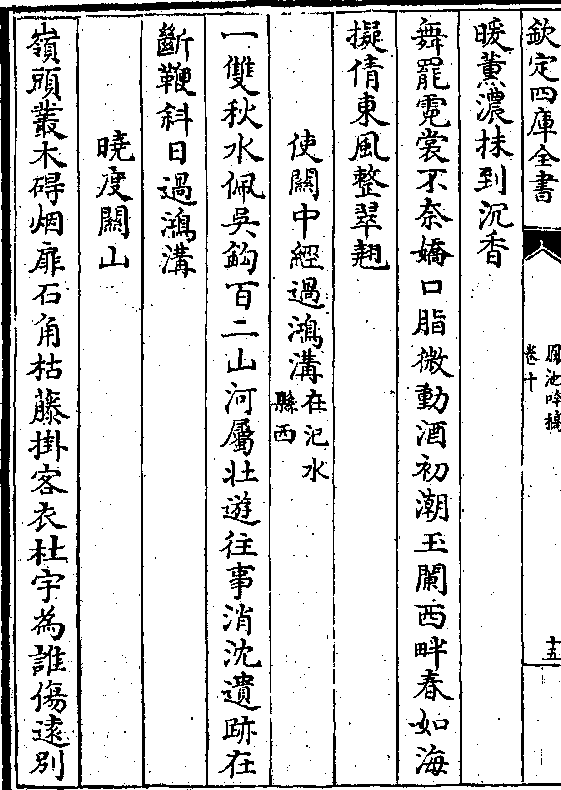 欽定四庫全書
鳳池吟稿
卷十
十五
暖薰濃抹到沉香
舞罷霓裳不奈嬌口脂微動酒初潮玉闌西畔春如海
擬倩東風整翠翹
使關中經過鴻溝在汜水縣西
一雙秋水佩吳鈎百二山河屬壯遊往事消沈遺跡在
斷鞭斜日過鴻溝
曉度關山
嶺頭叢木碍烟扉石角枯藤掛客衣杜宇為誰傷逺别